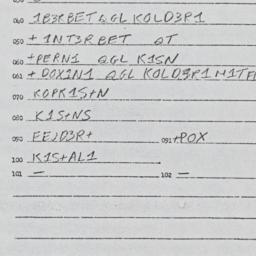 040 1B3RBET QGL KOLD3P1
050 + 1NT3RBET QT
060 +PERN1 QGL K1SN
061 + DOX1N1 QGL KOLD3P1 M1TF
070 KOPK1S+N
080 K1S+NS
090 FE2D3R+ 091 +POX
100 K1S+AL1
101 — 102 —